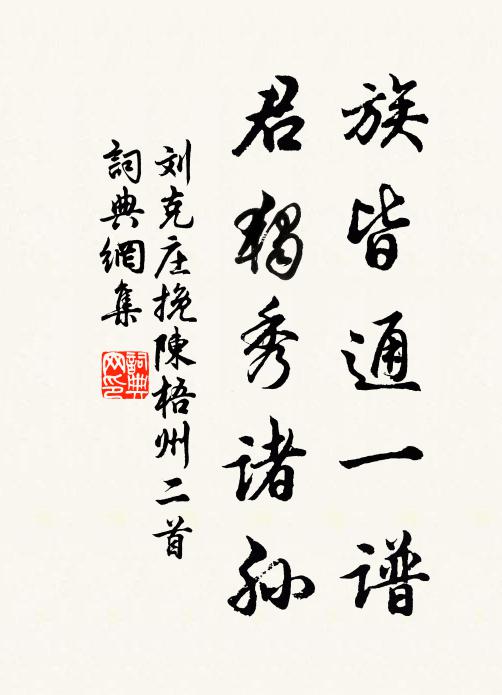 族皆通一谱
君独秀诸孙
刘克庄挽陳梧州二首
詞典網集
詞典网印